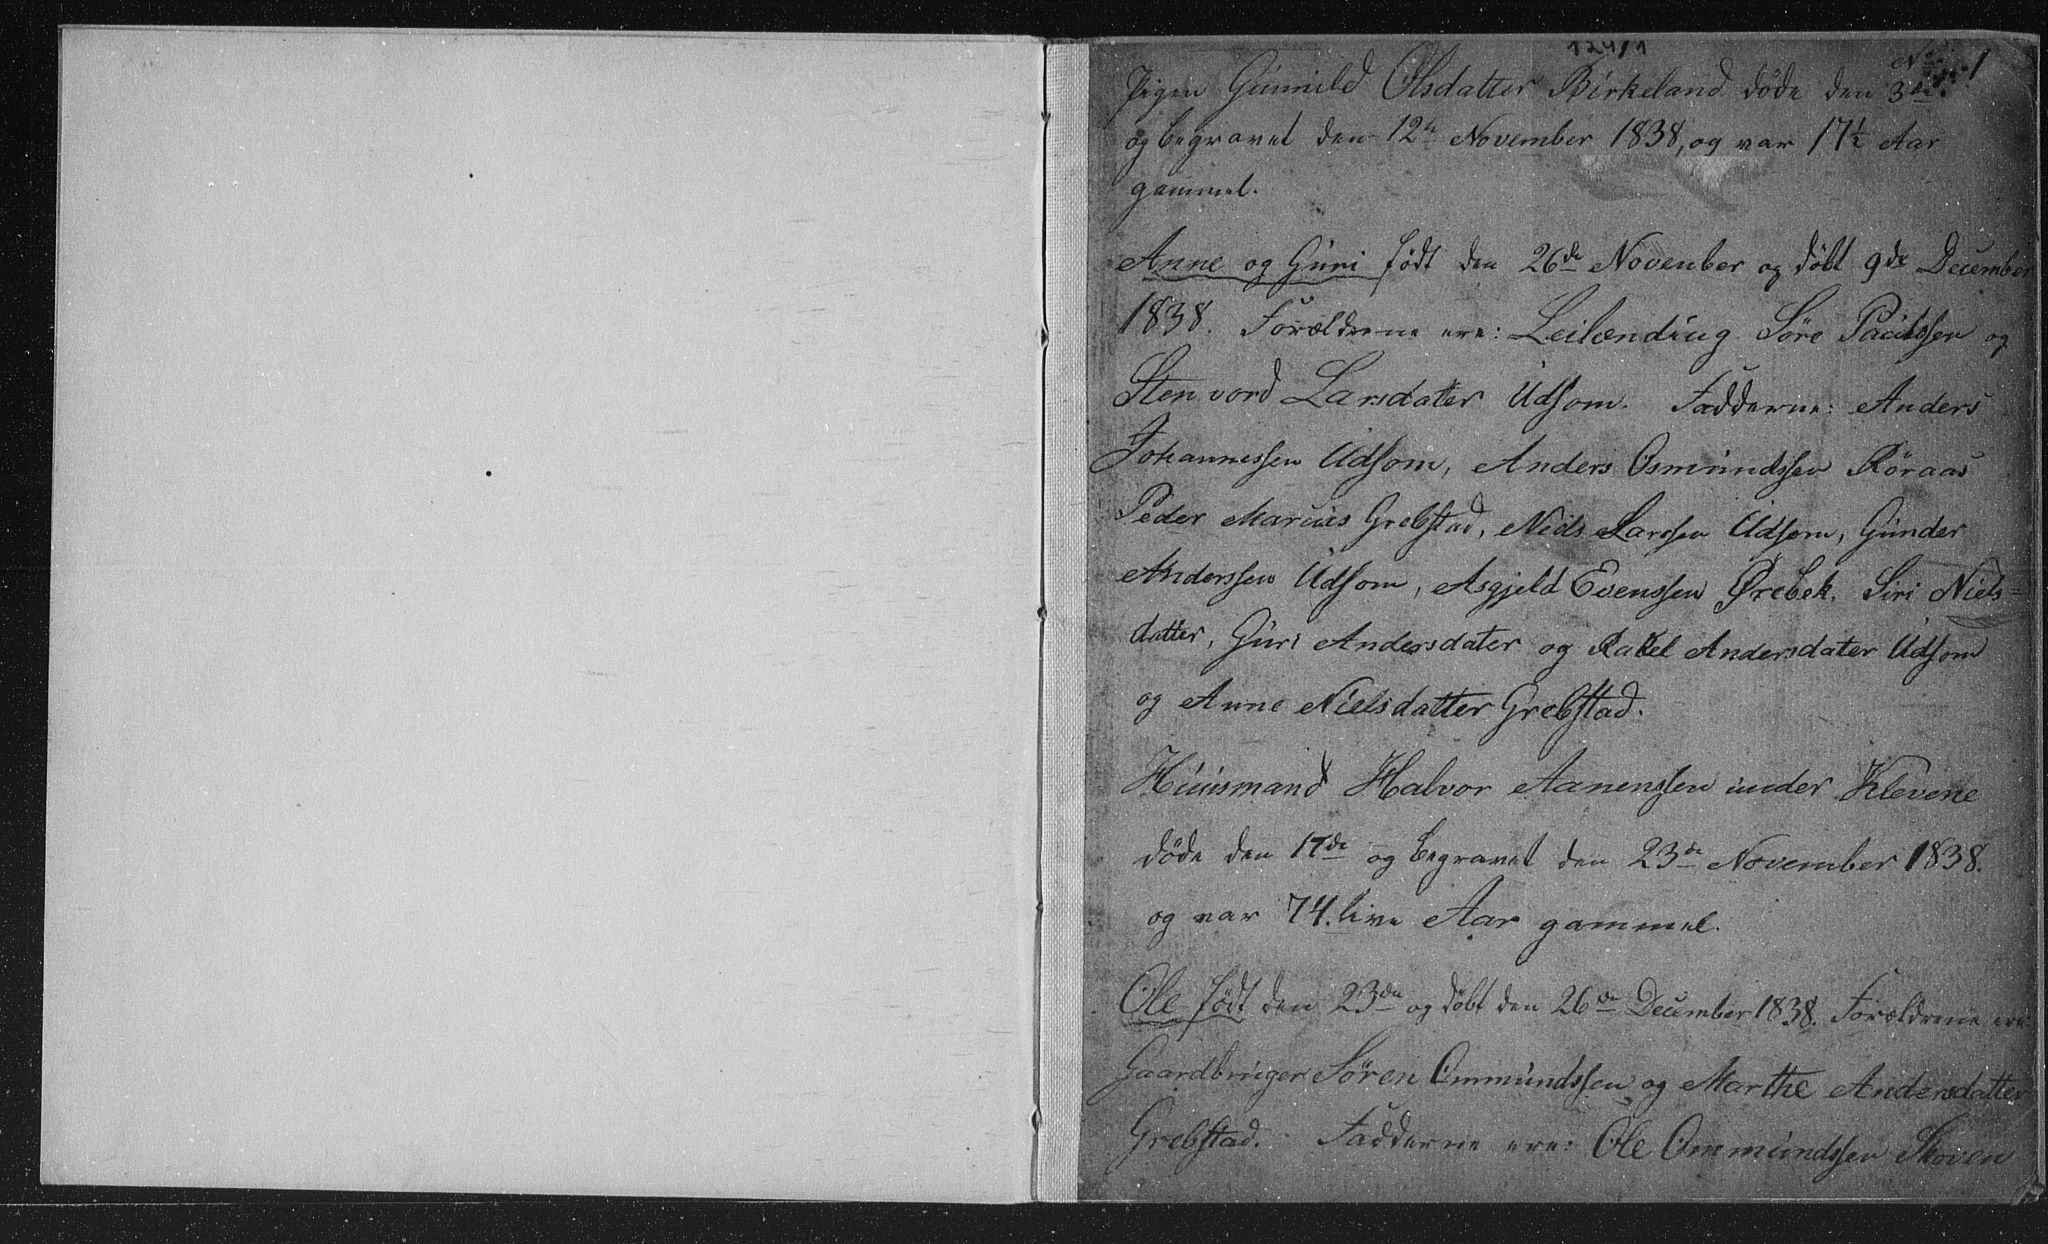 124/1
No 1
Pigen Gunnild Olsdatter Birkeland døde den 3die
og begravet den 12te November 1838, og var 17½ Aar
gammel.
Anne og Guri født den 26de November og døbt 9de December
1838. Forældrene ere: Leilænding Søre Paulssen og
Stenvord Larsdater Udsom. Fadderne: Anders
Johannessen Udsom, Anders Osmundssen Røraas
Peder Marcus Grebstad, Niels Larssen Udsom, Gunder
Anderssen Udsom, Asgjeld Evenssen Ørebek. Siri Niels=
datter, Guri Andersdater og Rakel Andersdater Udsom
og Anne Nielsdatter Grebstad.
Huusmand Halvor Aanenssen under Klevene
døde den 17de og begravet den 23de November 1838.
og var 74. Aar gammel.
Ole født den 23de og døbt den 26de December 1838. Forældrene ere:
Gaardbruger Søren Ommundssen og Marthe Andersdatter
Grebstad. Fadderne ere: Ole Ommundssen Skoven